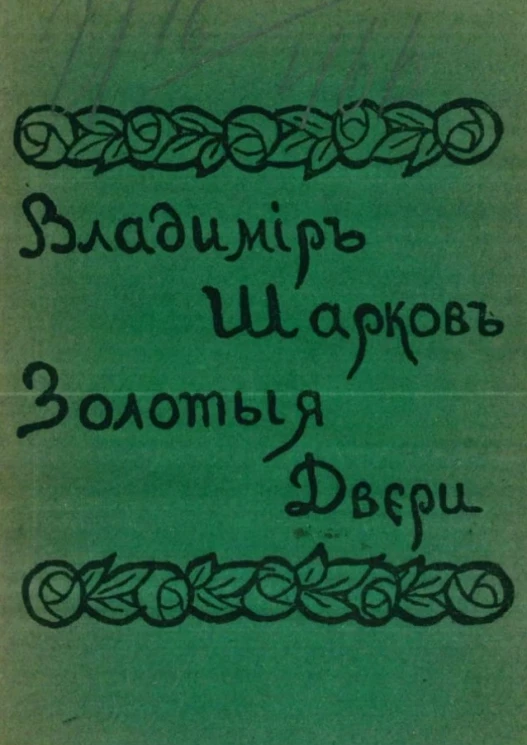 Владимiръ
Шарковъ
Золотыя
Двери